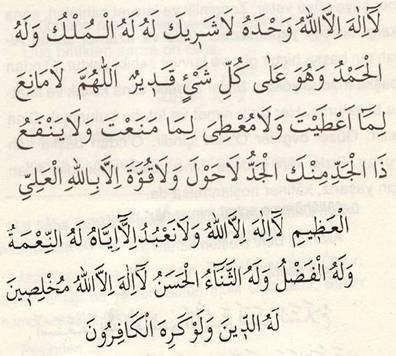 لَآاِلٰهَ اِلَّا اللهُ وَحْدَهُ لَاشَرِيكَ لَهُ لَهُ الْمُلْكُ وَلَهُ
الْحَمْدُ وَهُوَ عَلٰى كُلِّ شَىْءٍ قَدِيرٌ اَللّٰهُمَّ لَامَانِعَ
لِمَٓا اَعْطَيْتَ وَلَامُعْطِىَ لِمَا مَنَعْتَ وَلَايَنْفَعُ
ذَا الْجَدِّ مِنْكَ الْجَدُّ لَاحَوْلَ وَلَاقُوَّةَ اِلَّا بِاللهِ الْعَلِىِّ
الْعَظِيمِ لَآاِلٰهَ اِلَّا اللهُ وَلَانَعْبُدُ اِلَّٓا اِيَّاهُ لَهُ النِّعْمَةُ
وَلَهُ الْفَضْلُ وَلَهُ الثَّنَٓاءُ الْحَسَنُ لَآاِلٰهَ اِلَّا اللهُ مُخْلِصِينَ
لَهُ الدِّينَ وَلَوْكَرِهَ الْكَافِرُونَ